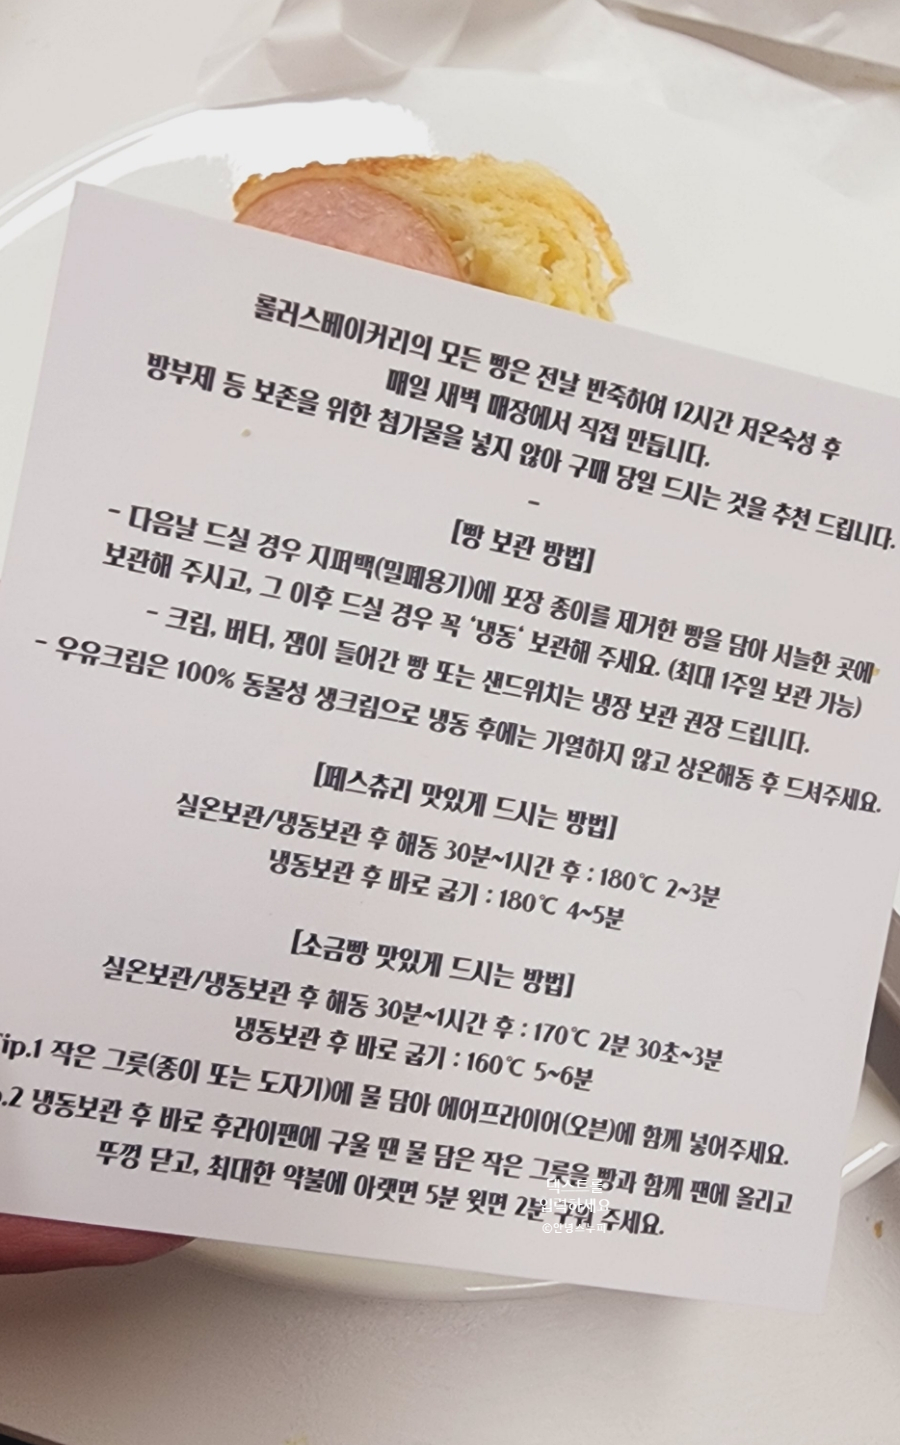 롤러스베이커리의 모든 빵은 전날 반죽하여 12시간 저온숙성 후
매일 새벽 매장에서 직접 만듭니다.
방부제 등 보존을 위한 첨가물을 넣지 않아 구매 당일 드시는 것을 추천 드립니다.
-
[빵 보관 방법]
- 다음날 드실 경우 지퍼백(밀폐용기)에 포장 종이를 제거한 빵을 담아 서늘한 곳에
보관해 주시고, 그 이후 드실 경우 꼭 '냉동' 보관해 주세요. (최대 1주일 보관 가능)
- 크림, 버터, 잼이 들어간 빵 또는 샌드위치는 냉장 보관 권장 드립니다.
- 우유크림은 100% 동물성 생크림으로 냉동 후에는 가열하지 않고 상온해동 후 드셔주세요.
[페스츄리 맛있게 드시는 방법]
실온보관/냉동보관 후 해동 30분~1시간 후 : 180℃ 2~3분
냉동보관 후 바로 굽기 : 180℃ 4~5분
[소금빵 맛있게 드시는 방법]
실온보관/냉동보관 후 해동 30분~1시간 후 : 170℃ 2분 30초~3분
냉동보관 후 바로 굽기 : 160℃ 5~6분
ip.1 작은 그릇(종이 또는 도자기)에 물 담아 에어프라이어(오븐)에 함께 넣어주세요.
.2 냉동보관 후 바로 후라이팬에 구울 땐 물 담은 작은 그릇을 빵과 함께 팬에 올리고
뚜껑 닫고, 최대한 약불에 아랫면 5분 윗면 2분 구워 주세요.
텍스트를
입력하세요